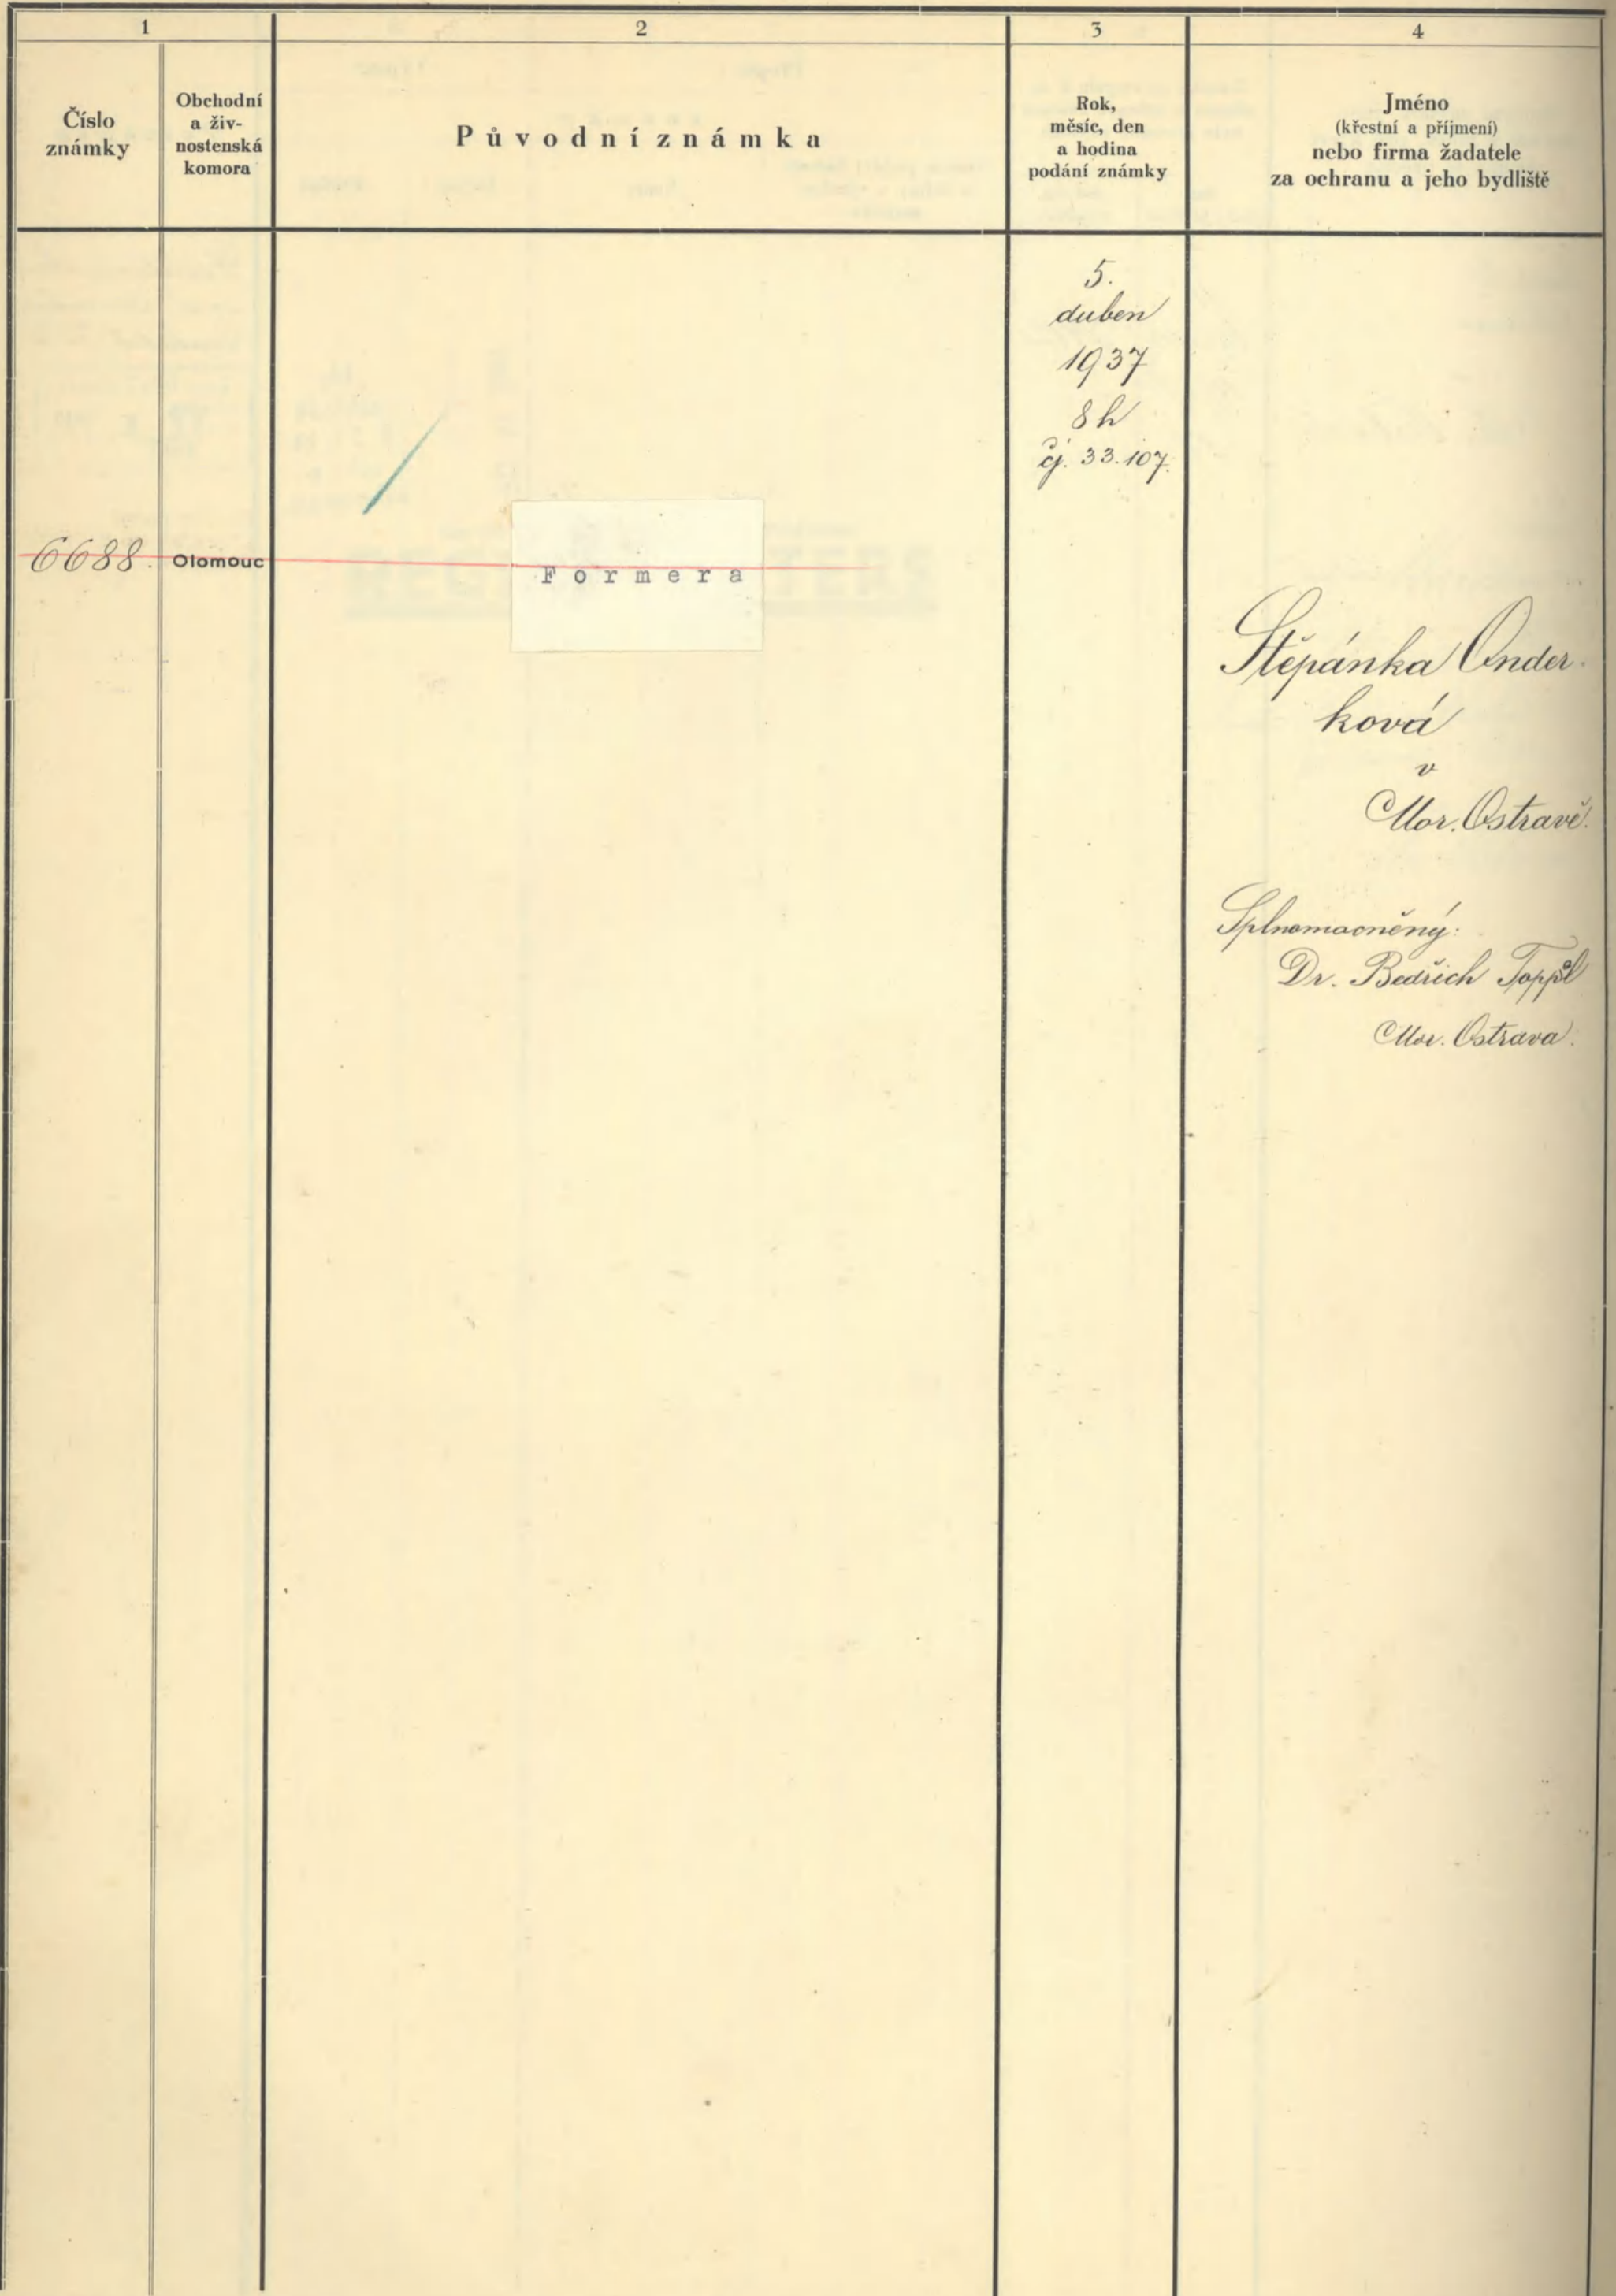 1
2
3
4
Číslo
známky
Obchodní
a živ-
nostenská
komora
Původní známka
Rok,
měsíc, den
a hodina
podání známky
Jméno
(křestní a příjmení)
nebo firma žadatele
za ochranu a jeho bydliště
5.
duben
1937
8h
čj. 33.107.
6688.
Olomouc
Formera
Štěpánka Onder-
ková
v
Mor. Ostravě.
Splnomocněný:
Dr. Bedřich
Mor. Ostrava.